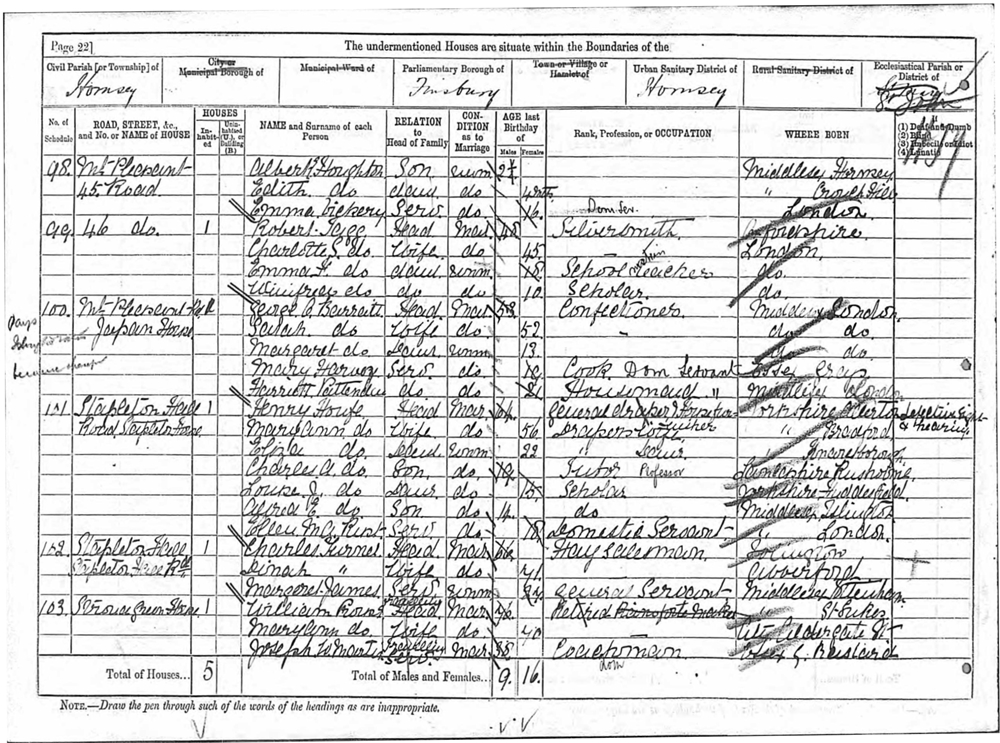 Page 22]
The undermentioned Houses are situate within the Boundaries of the
Civil Parish [or Township] of
City or Municipal Borough of
Municipal Ward of
Parliamentary Borough of
Town or Village or Hamlet of
Urban Sanitary District of
Rural Sanitary District of
Ecclesiastical Parish or District of
Hornsey Finsbury Hornsey
No. of Schedule
ROAD, STREET, &c., and No. or NAME of HOUSE
HOUSES
Inhabited
Uninhabited (U.), or Building (B.)
NAME and Surname of each Person
RELATION to Head of Family
CONDITION as to Marriage
AGE last Birthday of
Males Females
Rank, Profession, or OCCUPATION
WHERE BORN
(1) Deaf-and-Dumb
(2) Blind
(3) Imbecile or Idiot
(4) Lunatic
98 Mt Pleasant Albert Houghton Son unm 2 Middlesex Hornsey
45 Road Edith do daur do " Crouch Hill
Emma Vickery Serv do 16 Dom Ser. London
99 46 do. 1 Robert Head Mar 48 Silversmith Yorkshire
Charlotte S. do Wife do 45 London
Emma do daur unm 18 School Teacher do.
Winifred do do do 10 Scholar do
100 Mt Pleasant George Barratt Head Mar 53 Confectioner Middlesex London
Japan House Sarah do Wife do 52 " do do
Margaret do Daur unm 13 do do
Mary Harvey Serv do Cook Dom Servant Essex Grays
Harriett do do 21 Housemaid " Middlesex London
101 Stapleton Hall 1 Henry Howe Head Mar 64 General draper Yorkshire
Road Stapleton House Mary Ann do Wife do 56 Drapers Wife " Bradford
Eliza do Daur unm 22 " Daur " Knaresborough
Charles A. do Son do 19 Tutor Professor Lancashire Rusholme
Louise J. do Daur 15 Scholar Yorkshire Huddersfield
Alfred E. do Son do 14 do Middlesex Islington
Ellen M. Serv do 18 Domestic Servant " London
102 Stapleton Hall 1 Charles Turner Head Mar 66 Hay Salesman Islington
Stapleton Hall Rd Dinah " Wife do 71
Margaret James Serv unm 27 General Servant Middlesex Tottenham
103 Stroud Green House 1 William Head Mar 76 Retired Pianoforte Maker " St Lukes
Mary Ann do Wife do 40
Joseph W. Martin Serv Mar 38 Coachman
Dom
Total of Houses... 5
Total of Males and Females... 9 16
NOTE.—Draw the pen through such of the words of the headings as are inappropriate.